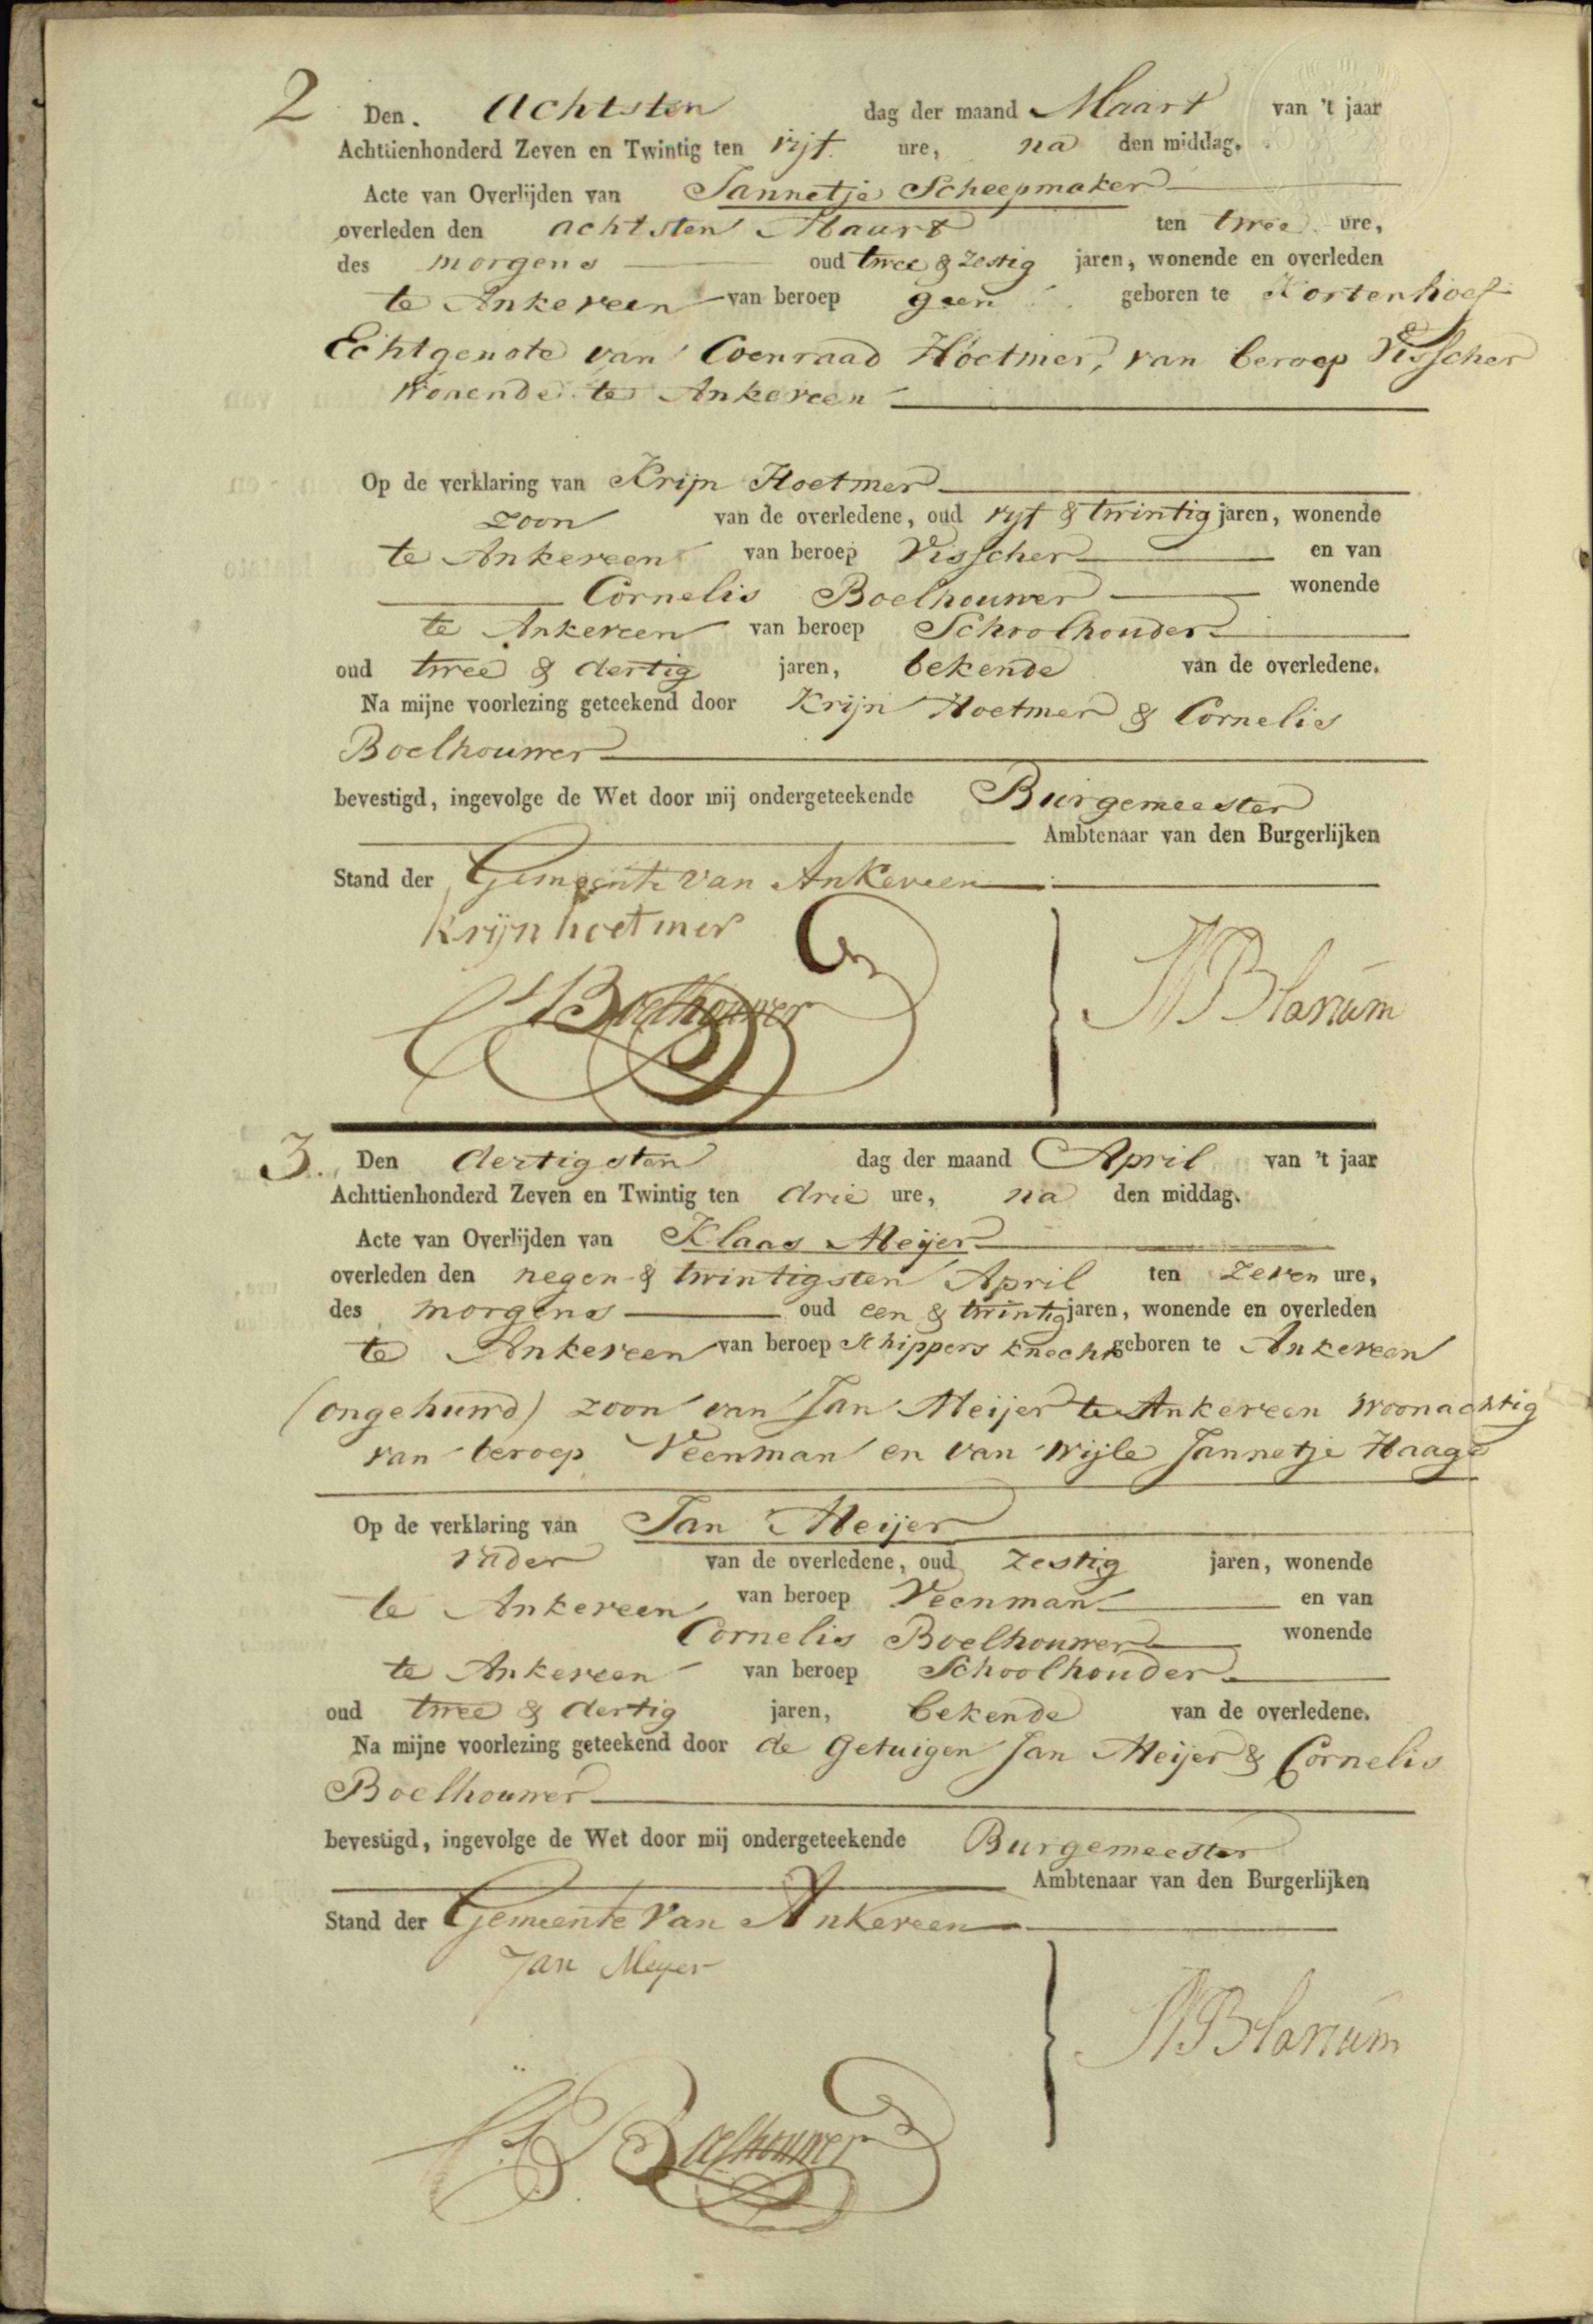 2 Den. Achtsten dag der maand Maart van 't jaar
Achttienhonderd Zeven en Twintig ten vijf ure, na den middag.
Acte van Overlijden van Jannetje Scheepmaker
overleden den achtsten Maart ten twee ure,
des morgens oud twee & zestig jaren, wonende en overleden
te Ankeveen van beroep geen geboren te Kortenhoef
Echtgenote van Coenraad Hoetmer, van beroep Visscher
wonende te Ankeveen
Op de verklaring van Krijn Hoetmer
zoon van de overledene, oud vyf & twintig jaren, wonende
te Ankeveen van beroep Visscher en van
Cornelis Boelhouwer wonende
te Ankeveen van beroep Schoolhouder
oud twee & dertig jaren, bekende van de overledene.
Na mijne voorlezing geteekend door Krijn Hoetmer & Cornelis
Boelhouwer
bevestigd, ingevolge de Wet door mij ondergeteekende Burgemeester
Ambtenaar van den Burgerlijken
Stand der Gemeente van Ankeveen
Krijn hoetmer
Boelhouwer
3. Den dertigsten dag der maand April van 't jaar
Achttienhonderd Zeven en Twintig ten drie ure, na den middag.
Acte van Overlijden van Klaas Meijer
overleden den negen & twintigsten April ten zeven ure,
des morgens oud een & twintig jaren, wonende en overleden
te Ankeveen van beroep Schippers knecht geboren te Ankeveen
(ongehuwd) zoon van Jan Meijer te Ankeveen woonachtig
van beroep Veenman en van wijle Jannetje Haage
Op de verklaring van Jan Meijer
vader van de overledene, oud zestig jaren, wonende
te Ankeveen van beroep Veenman en van
Cornelis Boelhouwer wonende
te Ankeveen van beroep Schoolhouder
oud twee & dertig jaren, bekende van de overledene.
Na mijne voorlezing geteekend door de Getuigen Jan Meijer & Cornelis
Boelhouwer
bevestigd, ingevolge de Wet door mij ondergeteekende Burgemeester
Ambtenaar van den Burgerlijken
Stand der Gemeente van Ankeveen
Jan Meyer
Boelhouwer